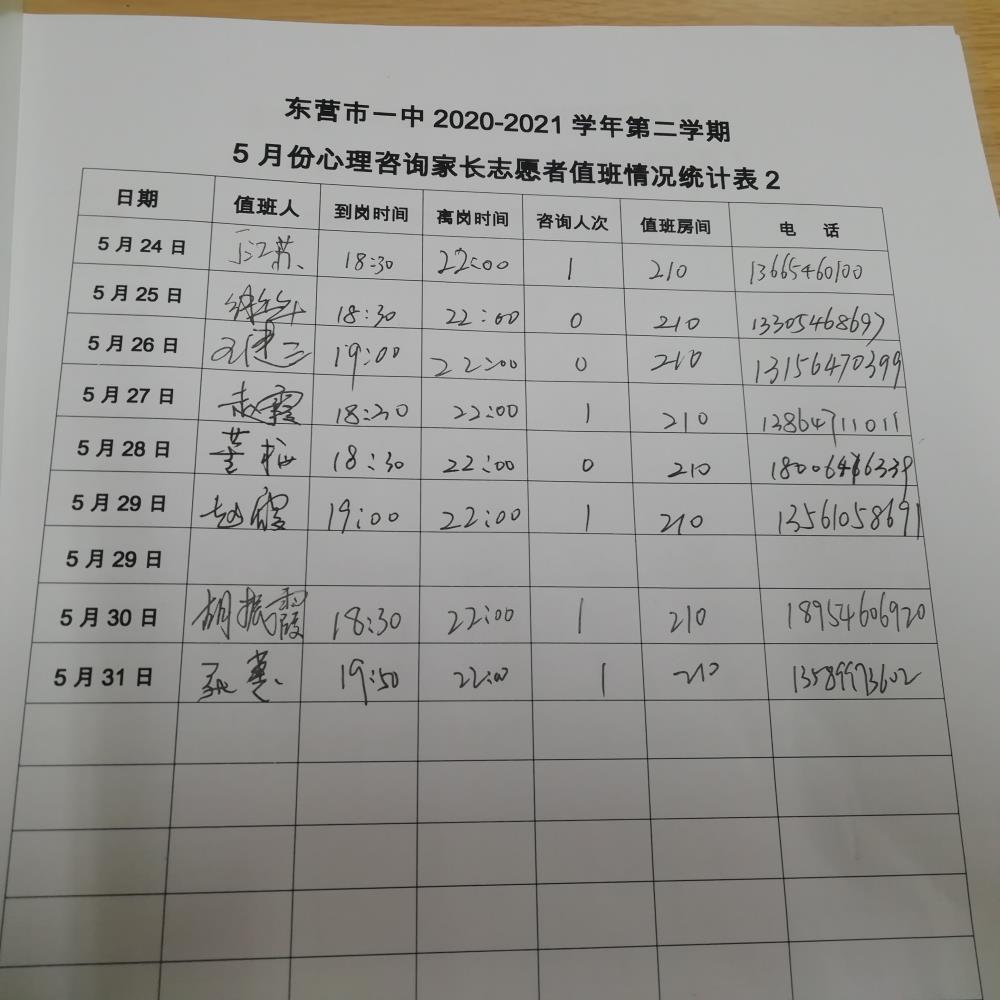 东营市一中 2020-2021 学年第二学期
5 月份心理咨询家长志愿者值班情况统计表 2
日期 值班人 到岗时间 离岗时间 咨询人次 值班房间 电 话
5 月 24 日 18:30 22:00 1 210 13665460100
5 月 25 日 18:30 22:00 0 210 13305468697
5 月 26 日 19:00 22:00 0 210 13156470399
5 月 27 日 赵霞 18:30 22:00 1 210 13864711011
5 月 28 日 18:30 22:00 0 210
5 月 29 日 赵霞 19:00 22:00 1 210 13561058691
5 月 29 日
5 月 30 日 胡振霞 18:30 22:00 1 210 18954606920
5 月 31 日 19:50 22:00 1 210 13589973602